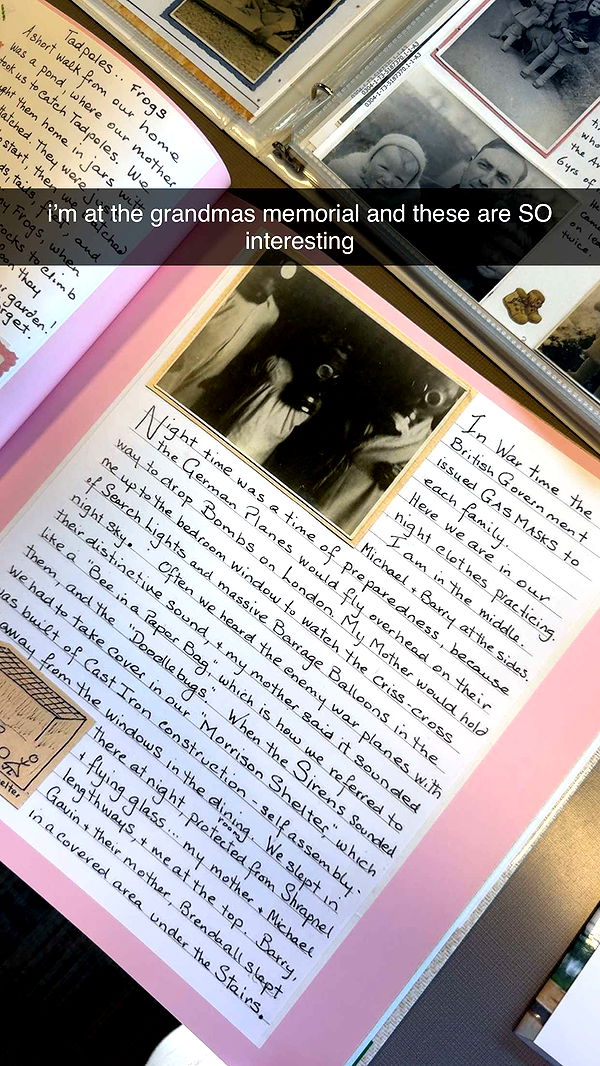 Tadpoles... Frogs
A short walk from our home
was a pond, where our mother
took us to catch Tadpoles. We
them home in jars with
hatched. They were
start, then we watched
and
Frogs, when
rocks to climb
they
garden!
forget.
0304-1-73-5187370.1-1.A3
i'm at the grandmas memorial and these are SO
interesting
In War time the
British Government
issued GAS MASKS to
each family.
Here we are in our
night clothes practicing.
I am in the middle.
Michael + Barry at the sides.
Night time was a time of preparedness, because
the German Planes would fly overhead on their
way to drop Bombs on London. My Mother would hold
me up to the bedroom window to watch the Criss-cross
of Search Lights and massive Barrage Balloons in the
night sky. Often we heard the enemy war planes with
their distinctive sound, + my mother said it sounded
like a "Bee in a Paper Bag," which is how we referred to
them, and the "Doodlebugs". When the Sirens Sounded
we had to take cover in our "Morrison Shelter," which
was built of Cast Iron construction - self assembly.
away from the windows in the dining room. We slept in
there at night, protected from Shrapnel
+ flying glass... my mother + Michael
lengthways, + me at the top. Barry,
Gavin + their mother, Brenda all slept
in a covered area under the Stairs.